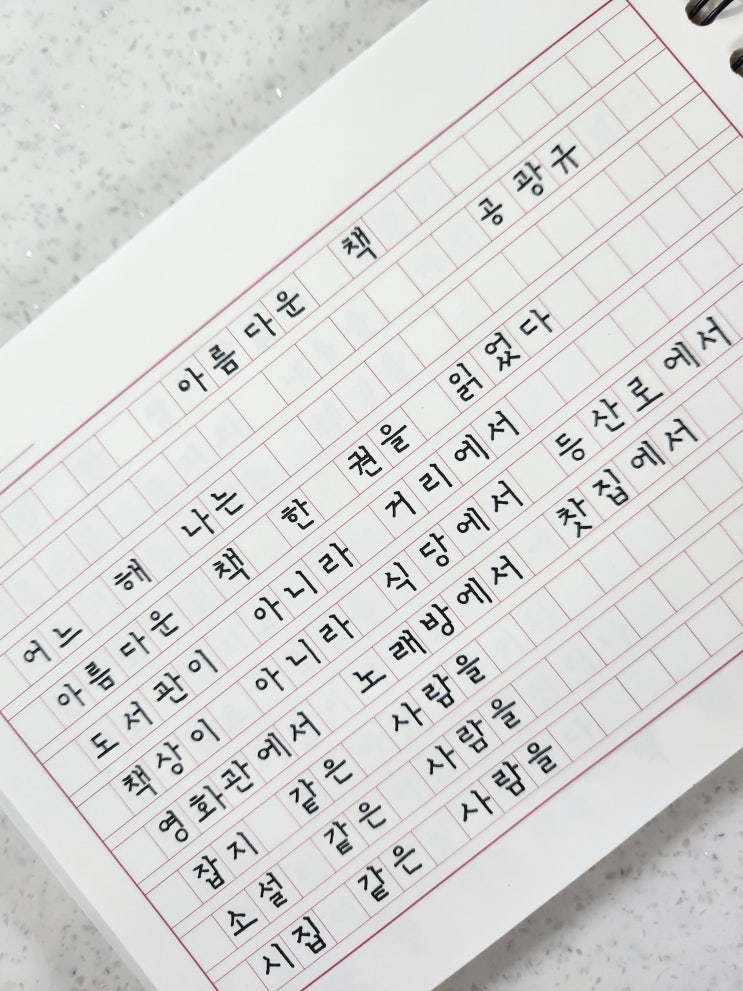 아름다운 책
공광규
어느 해 나는
아름다운 책 한 권을 읽었다
도서관이 아니라 거리에서
책상이 아니라 식당에서 등산로에서
영화관에서 노래방에서 찻집에서
잡지 같은 사람을
소설 같은 사람을
시집 같은 사람을